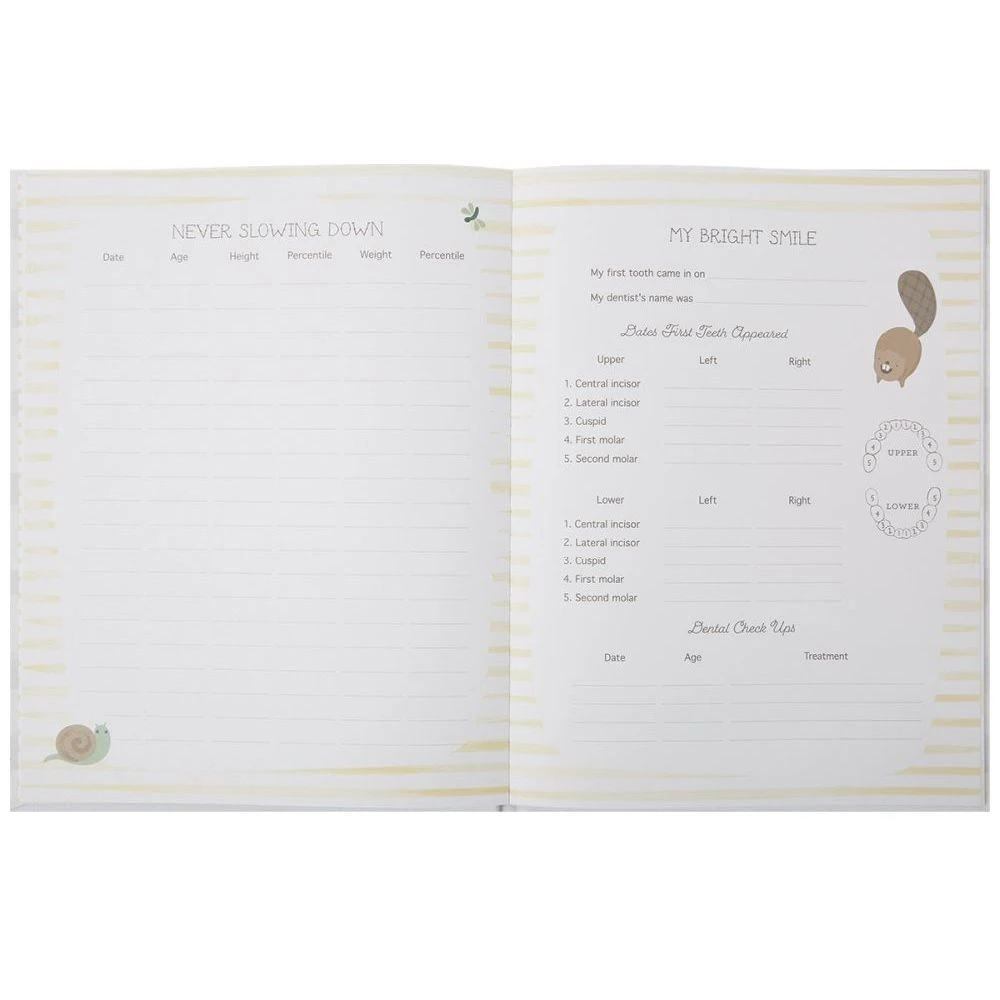 NEVER SLOWING DOWN
Date Age Height Percentile Weight Percentile
MY BRIGHT SMILE
My first tooth came in on
My dentist's name was
Dates First Teeth Appeared
Upper Left Right
1. Central incisor
2. Lateral incisor
3. Cuspid
4. First molar
5. Second molar
UPPER
Lower Left Right
1. Central incisor
2. Lateral incisor
3. Cuspid
4. First molar
5. Second molar
LOWER
Dental Check Ups
Date Age Treatment